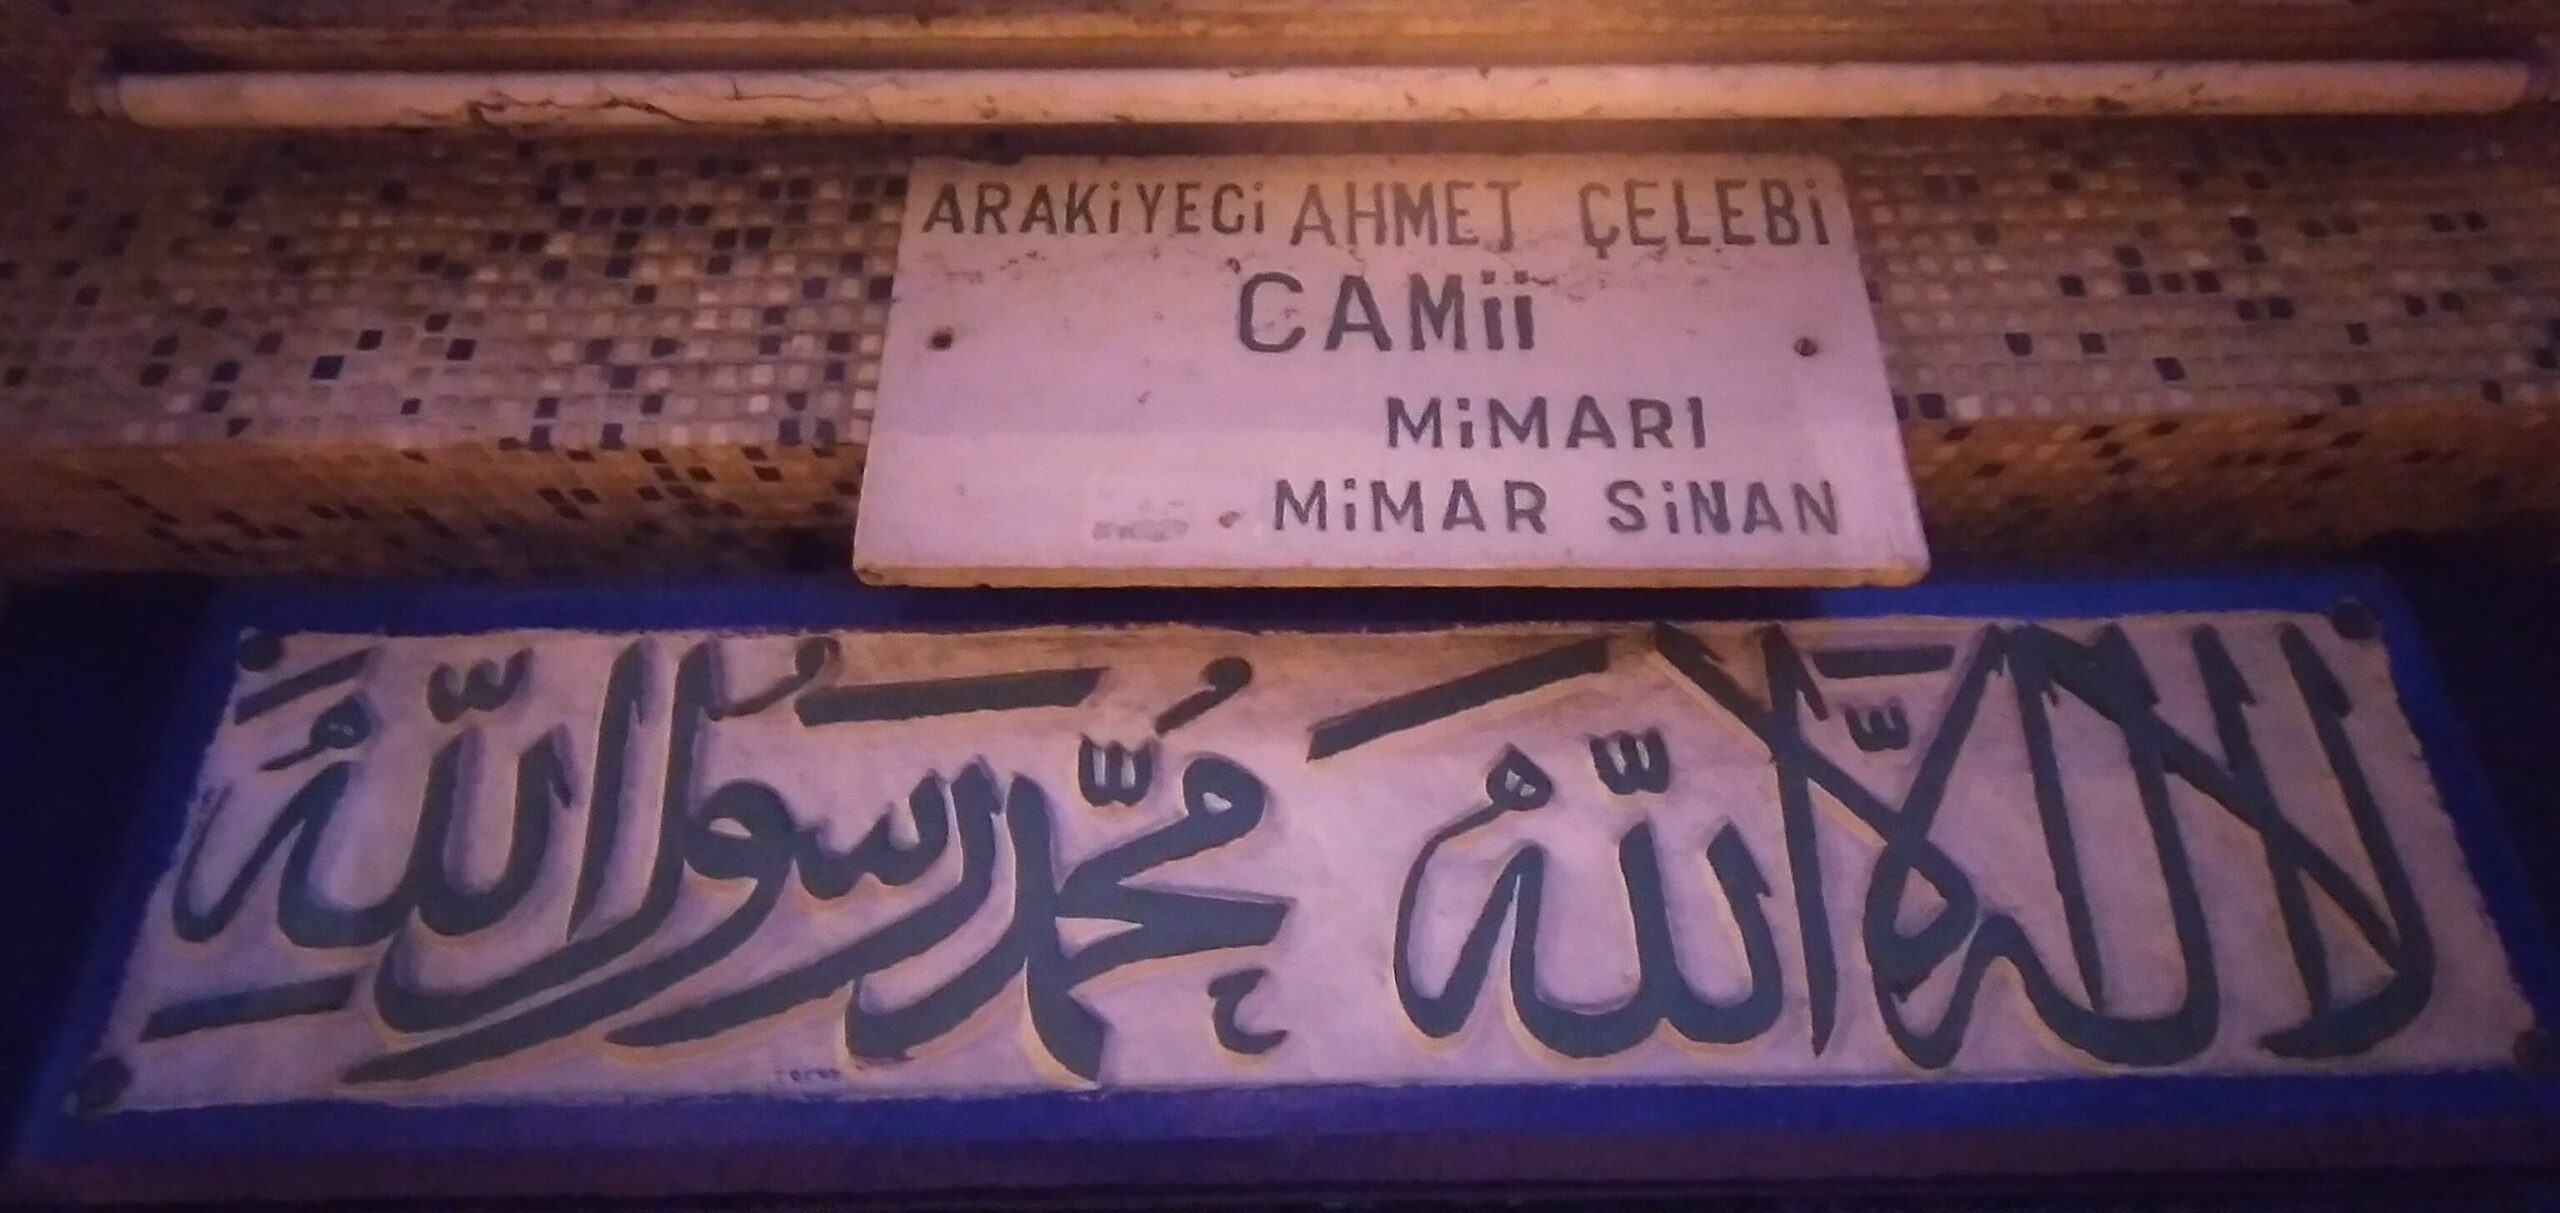 ARAKİYECİ AHMET ÇELEBİ
CAMİİ
MİMARI
MİMAR SİNAN
لا اله الا الله محمد رسول الله